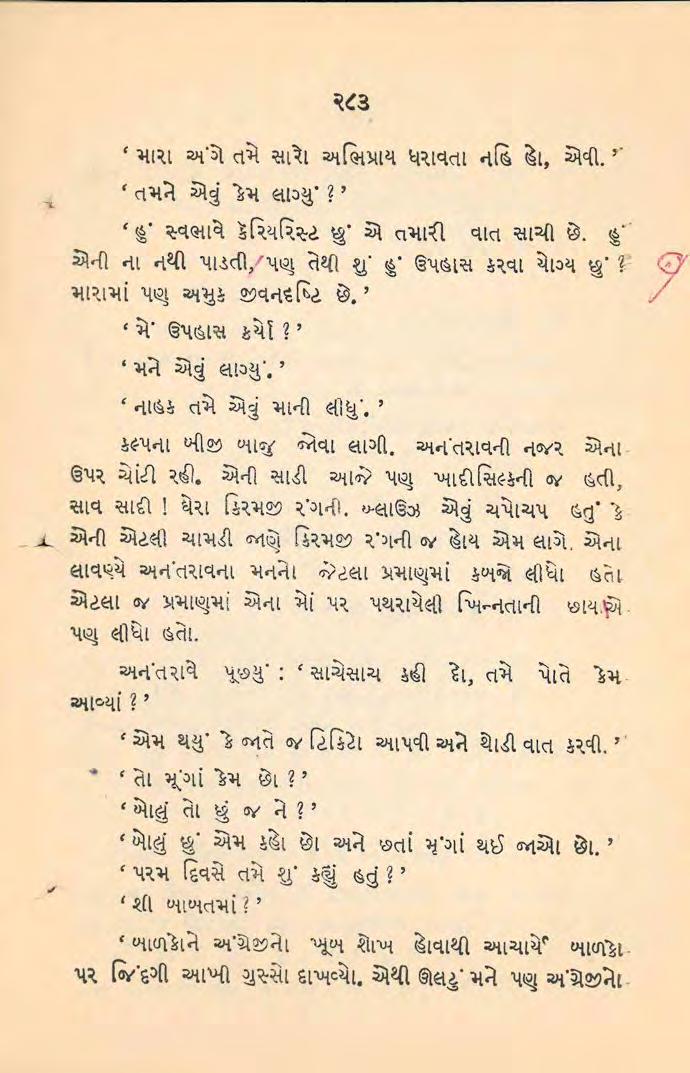 ૨૮૩
‘ મારા અંગે તમે સારો અભિપ્રાય ધરાવતા નહિ હો, એવી. ’
‘ તમને એવું કેમ લાગ્યું ? ’
‘ હું સ્વભાવે કૅરિયરિસ્ટ છું એ તમારી વાત સાચી છે. હું
એની ના નથી પાડતી, પણ તેથી શું હું ઉપહાસ કરવા યોગ્ય છું ?
મારામાં પણ અમુક જીવનદૃષ્ટિ છે. ’
‘ મેં ઉપહાસ કર્યો ? ’
‘ મને એવું લાગ્યું. ’
‘ નાહક તમે એવું માની લીધું. ’
કલ્પના બીજી બાજુ જોવા લાગી. અનંતરાવની નજર એના
ઉપર ચોંટી રહી. એની સાડી આજે પણ ખાદીસિલ્કની જ હતી,
સાવ સાદી ! ઘેરા કિરમજી રંગની. બ્લાઉઝ એવું ચપોચપ હતું કે
એની એટલી ચામડી જાણે કિરમજી રંગની જ હોય એમ લાગે. એના
લાવણ્યે અનંતરાવના મનનો જેટલા પ્રમાણમાં કબજો લીધો હતો
એટલા જ પ્રમાણમાં એના મોં પર પથરાયેલી ખિન્નતાની છાયાએ
પણ લીધો હતો.
અનંતરાવે પૂછ્યું : ‘ સાચેસાચ કહી દો, તમે પોતે કેમ
આવ્યાં ? ’
‘ એમ થયું કે જાતે જ ટિકિટો આપવી અને થોડી વાત કરવી. ’
‘ તો મૂંગાં કેમ છો ? ’
‘ બોલું તો છું જ ને ? ’
‘ બોલું છું એમ કહો છો અને છતાં મૂંગાં થઈ જાઓ છો. ’
‘ પરમ દિવસે તમે શું કહ્યું હતું ? ’
‘ શી બાબતમાં ? ’
‘ બાળકોને અંગ્રેજીનો ખૂબ શોખ હોવાથી આચાર્યે બાળકો
પર જિંદગી આખી ગુસ્સો દાખવ્યો. એથી ઊલટું મને પણ અંગ્રેજીનો